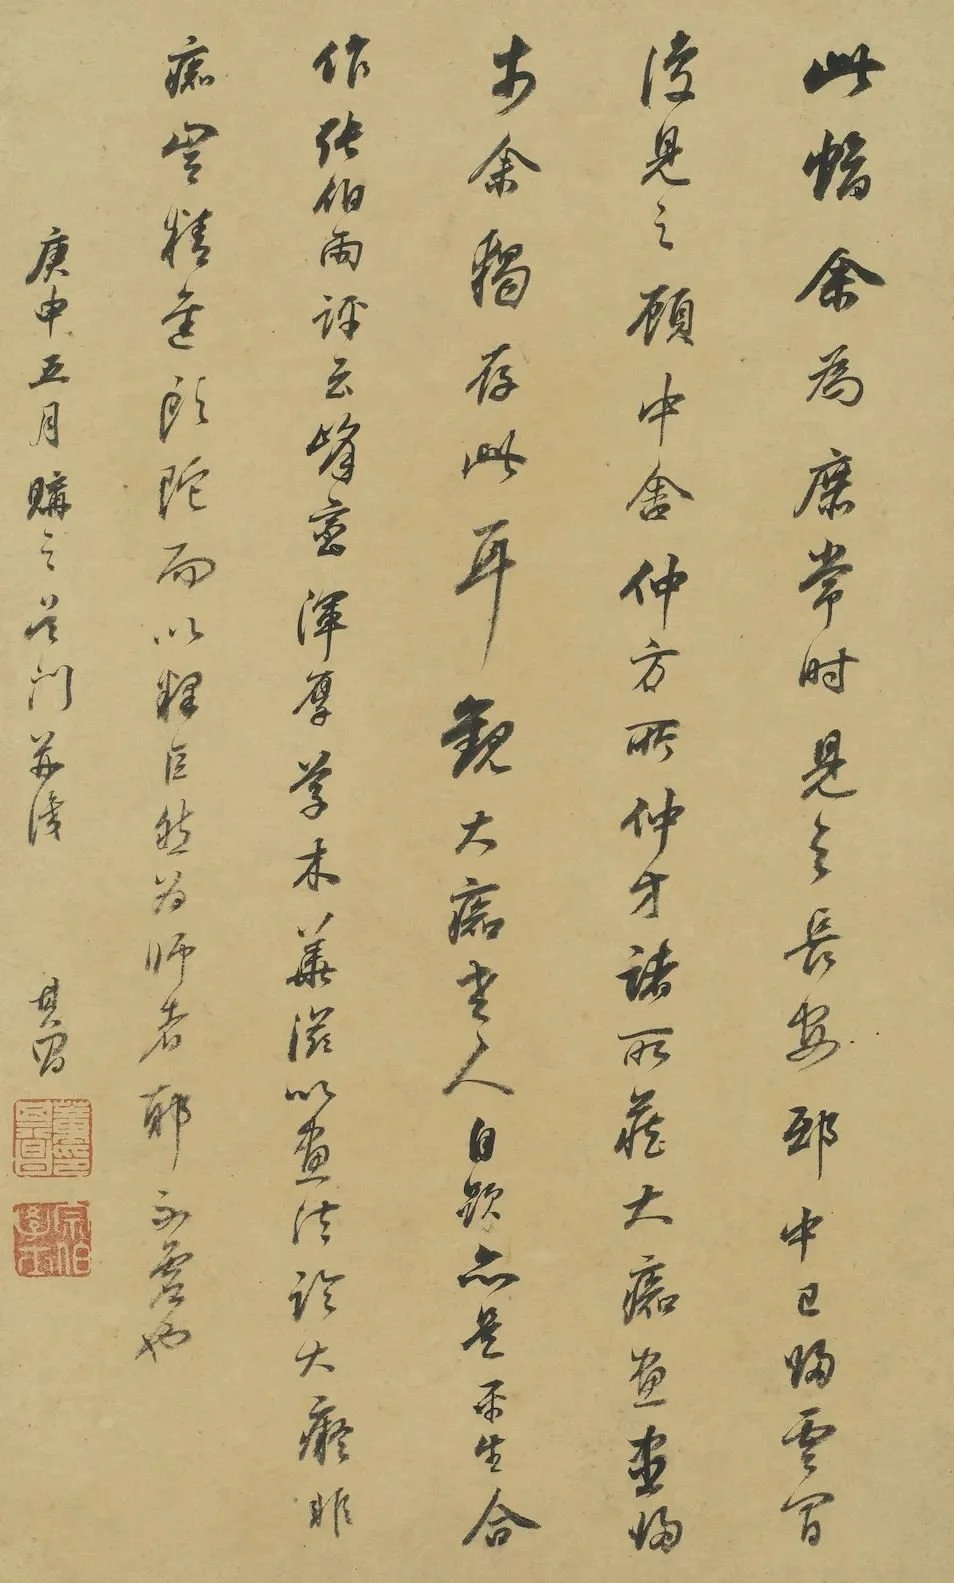 此幅余為庶常時見之長安邸中已歸雲間
復見之顧中舍仲方所仲方諸所藏大癡畫盡歸
於余獨存此耳觀大癡老人自題亦是平生合
作張伯雨評云峰巒渾厚草木華滋以畫法論大癡非
癡豈精進頭陀而以釋巨然為師者耶不虛也
庚申五月購之吳門 其昌